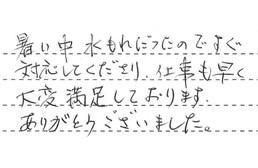 暑い中 水もれだったのですぐ
対応してくださり、仕事も早く
大変満足しております。
ありがとうございました。